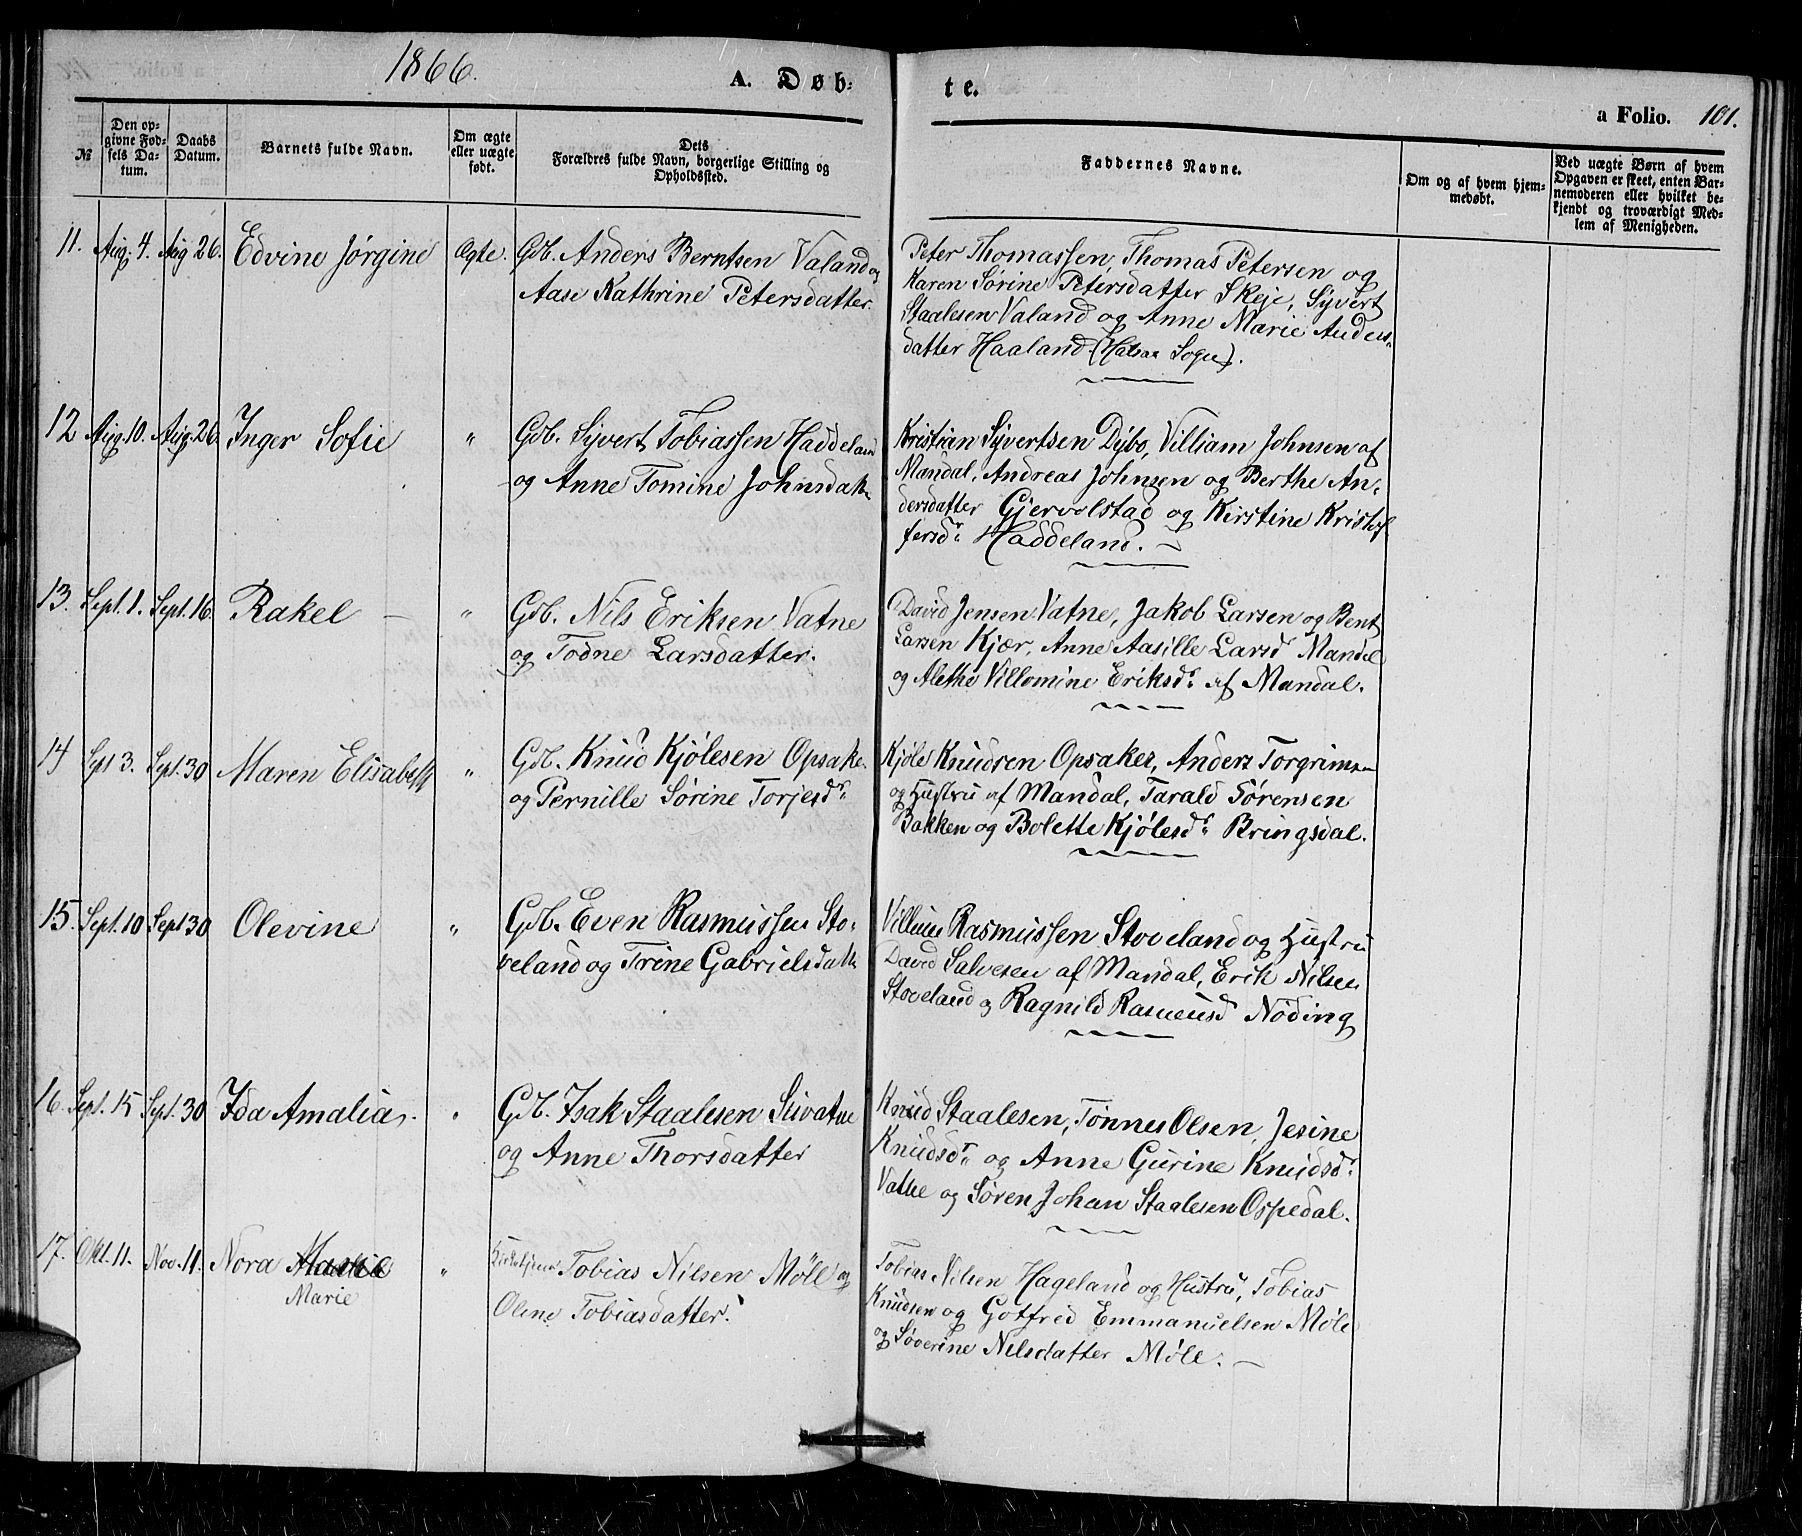 1866.
A. Døb-
te.
a Folio. 101.
№
Den op-
givne Fød-
sels Da-
tum.
Daabs
Datum.
Barnets fulde Navn.
Om ægte
eller uægte
født.
Dets
Forældres fulde Navn, borgerlige Stilling og
Opholdssted.
Faddernes Navne.
Om og af hvem hjem-
medøbt.
Ved uægte Børn af hvem
Opgaven er skeet, enten Bar-
nemoderen eller hvilket be-
kjendt og troværdigt Med-
lem af Menigheden.
11. Aug. 4. Aug 26. Edvine Jørgine Ægte. Gdb. Anders Berntsen Valand og
Aase Kathrine Petersdatter.
Peter Thomassen, Thomas Petersen og
Karen Sørine Petersdatter Skeje, Syvert
Staalesen Valand og Anne Marie Anders-
datter Haaland. (Halsaa Sogn).
12 Aug. 10. Aug. 26. Inger Sofie " Gdb. Syvert Tobiassen Haddeland
og Anne Tomine Johnsdatr
Kristian Syvertsen Dybo, Villiam Johnsen af
Mandal, Andreas Johnsen og Berthe An-
dersdatter Gjervolstad og Kirstine Kristof
fersdr Haddeland. –
13. Sept. 1. Sept. 16. Rakel – " Gdb. Nils Eriksen Vatne
og Todne Larsdatter.
David Jensen Vatne, Jakob Larsen og Bent
Larsen Kjær, Anne Aasille Larsd Mandal
og Alethe Villomine Eriksdr af Mandal.
14 Spt 3. Sept. 30 Maren Elisabeth " Gdb. Knud Kjølesen Opsaker
og Pernille Sørine Torjesdr
Kjøle Knudsen Opsaker, Anders Torgrimsen
og Hustru af Mandal, Tarald Sørensen
Bakken og Bolette Kjølesdr Bringsdal.
15. Sept. 10 Sept 30 Olevine " Gdb. Even Rasmussen Sto-
veland og Trine Gabrielsdattr
Villum Rasmussen Stoveland og Hustru
David Salvesen af Mandal, Erik Nilsen
Stoveland og Ragnild Rasmusd Nøding
16. Sept. 15 Sept. 30 Ida Amalia. " Gdb. Isak Staalesen Livatne
og Anne Thorsdatter
Knud Staalesen, Tønnes Olsen, Jesine
Knudsdr og Anne Gurine Knudsdr
Vatne og Søren Johan Staalesen Ospedal.
17. Okt. 11. Nov. 11. Nora
Marie
" Tobias Nilsen Møll og
Oline Tobiasdatter.
Tobias Nilsen Hageland og Hustru, Tobias
Knudsen og Gotfred Emmanuelsen Møle
og Søverine Nilsdatter Møll. –